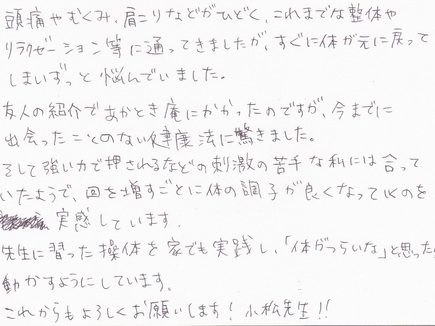 頭痛やむくみ、肩こりなどがひどく、これまでな整体や
リラクゼーション等に通ってきましたが、すぐに体が元に戻って
しまいずっと悩んでいました。
友人の紹介であかとき庵にかかったのですが、今までに
出会ったことのない健康法に驚きました。
そして強い力で押されるなどの刺激の苦手な私には合って
いたようで、回を増すごとに体の調子が良くなっていくのを
実感しています。
先生に習った操体を家でも実践し、「体がつらいな」と思ったら
動かすようにしています。
これからもよろしくお願いします！小松先生!!